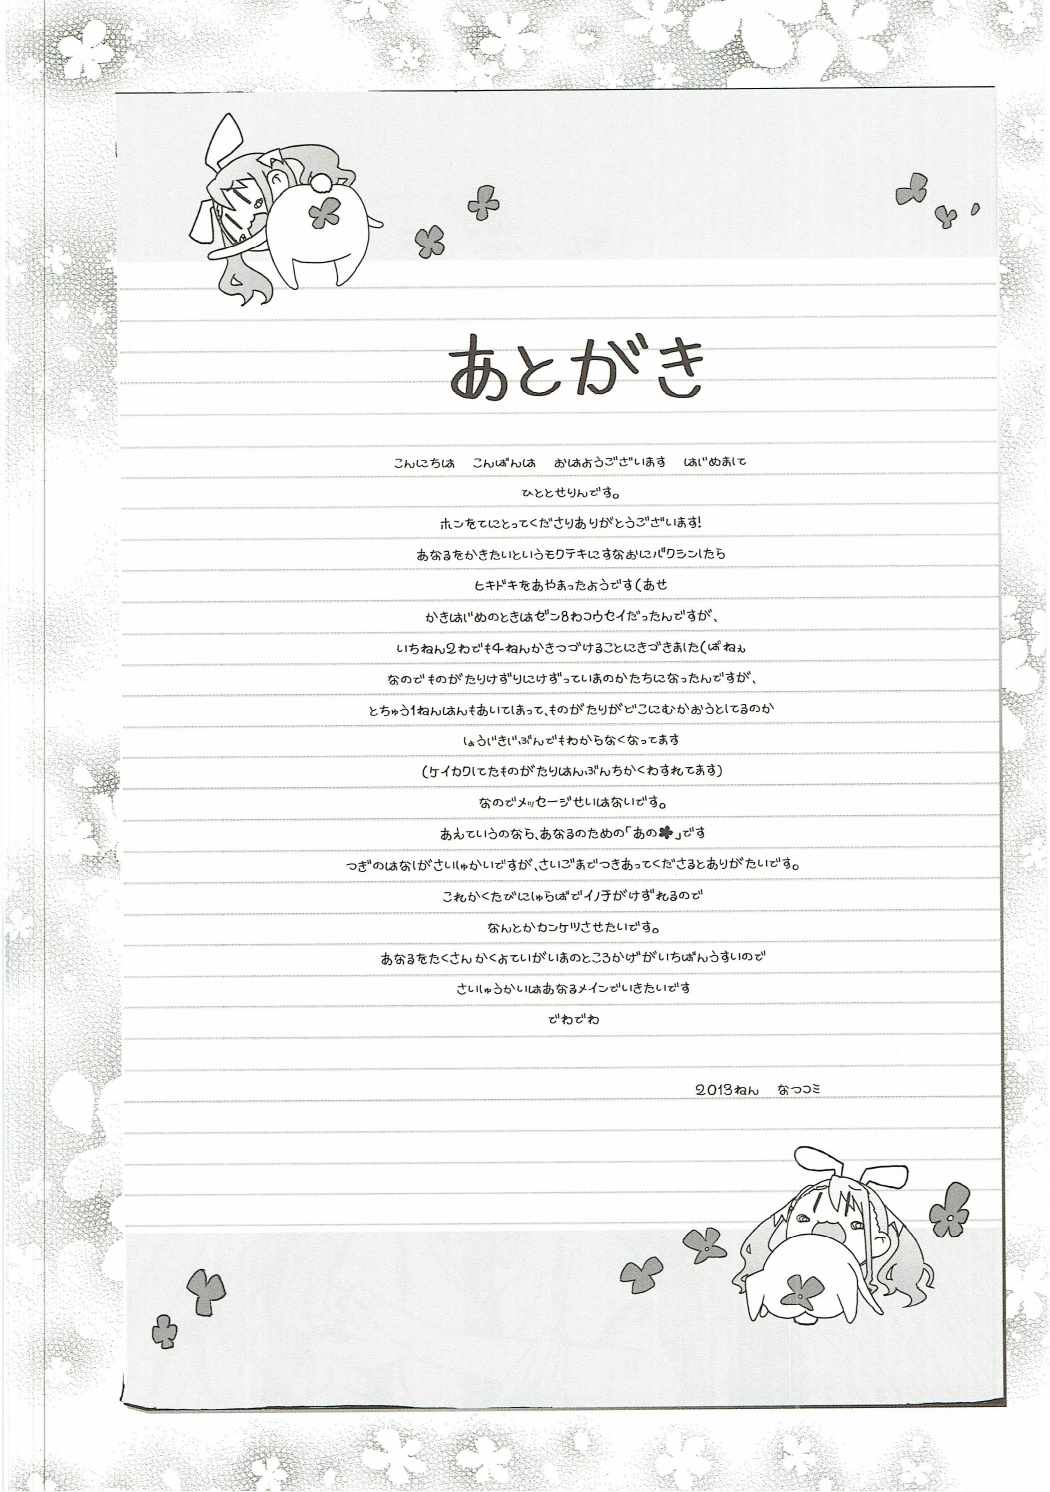 あとがき
こんにちは　こんばんは　おはようございます　はじめまして
ひととせりんです。
ホンをてにとってくださりありがとうございます!
あなるをかきたいというモクテキにすなおにバクシンしたら
ヒキドキをあやまったようです(あせ
かきはじめのときはゼン8わコウセイだったんですが、
いちねん2わでも4ねんかきつづけることにきづきました(ぱねぇ
なのでものがたりけずりにけずっていまのかたちになったんですが、
とちゅう1ねんはんもあいてしまって、ものがたりがどこにむかおうとしてるのか
しょうじきじぶんでもわからなくなってます
(ケイカクしてたものがたりはんぶんちかくわすれてます)
なのでメッセージせいはないです。
あえていうのなら、あなるのための「あの✽」です
つぎのはなしがさいしゅかいですが、さいごまでつきあってくださるとありがたいです。
これかくたびにしゅらばでイノチがけずれるので
なんとかカンケツさせたいです。
あなるをたくさんかくよていがいまのところかげがいちばんうすいので
さいしゅうかいはあなるメインでいきたいです
でわでわ
2013ねん　なつコミ